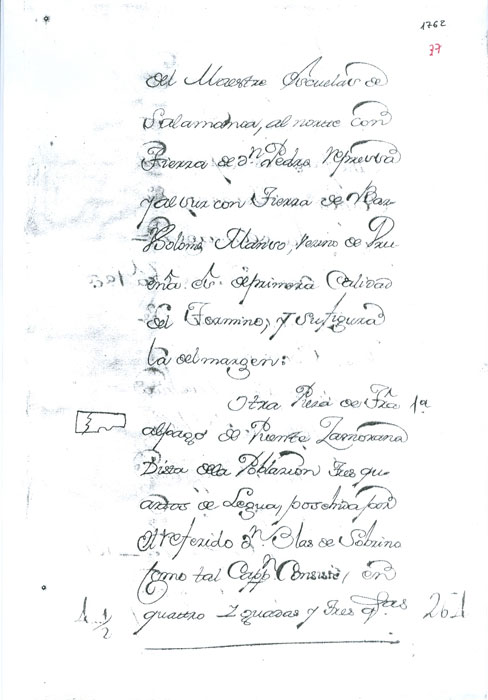 1762
37
del Maestre Escuela de
Salamanca, al norte con
Tierra de Dn. Pedro
y al sur con Tierra de Bar
Bolomé Manso, vezino de
de primera Calidad
del Termino, y su figura
la del margen:
Otra Pieza de Tra. 1a
al pago de Puente Zamorana
Dista de la Poblazion tres qu-
artos de Legua, posehida por
el referido Dn. Blas de Sobrino
como tal Cappn. en
quattro Yguadas y tres qtas 261
1 1/2